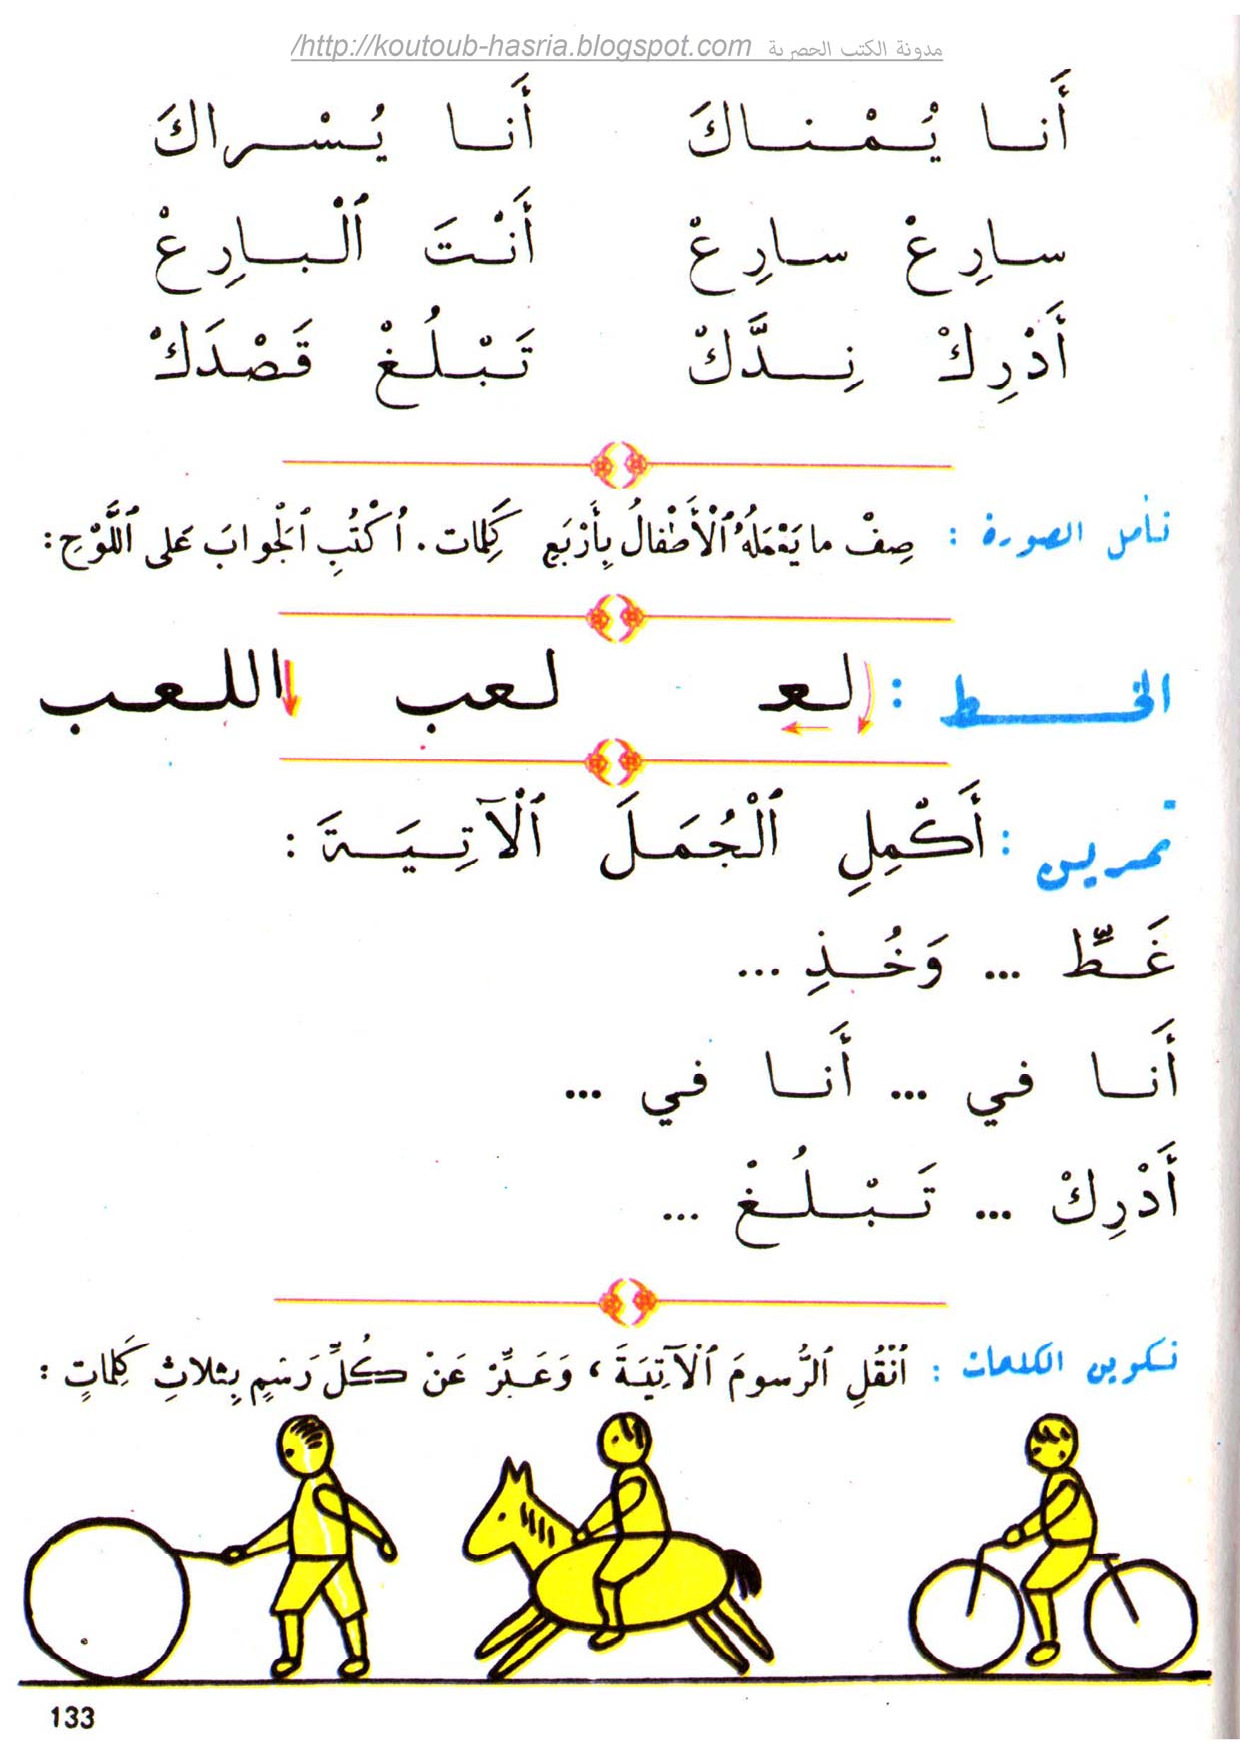 مدونة الكتب الحصرية http://koutoub-hasria.blogspot.com/
أَنا يُمْناكَ أَنا يُسْراكَ
سارِعْ سارِعْ أَنْتَ ٱلْبارِعْ
أَدْرِكْ نِدَّكْ تَبْلُغْ قَصْدَكْ
تأمل الصورة : صِفْ ما يَعْمَلُهُ ٱلْأَطْفالُ بِأَرْبَعِ كَلِمات. اُكْتُبِ ٱلْجَوابَ عَلى ٱللَّوْحِ :
الخط : لعـ لعب اللعب
تمرين : أَكْمِلِ ٱلْجُمَلَ ٱلْآتِيَةَ :
غَطِّ ... وَخُذِ ...
أَنا في ... أَنا في ...
أَدْرِكْ ... تَبْلُغْ ...
تكوين الكلمات : اُنْقُلِ ٱلرُّسومَ ٱلْآتِيَةَ ، وَعَبِّرْ عَنْ كُلِّ رَسْمٍ بِثلاثِ كَلِماتٍ :
133